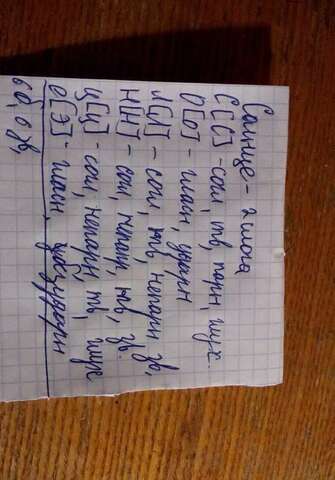 Солнце - 2 слога
С [С] - согл, тв, парн, глух.
О [о] - гласн, ударн
Л [л] - согл, тв, непарн зв,
Н [Н] - согл, непарн, тв, зв.
Ц [ц] - согл, непарн, тв, глух
е [э] - гласн, безударн
6 б, 0 зв,